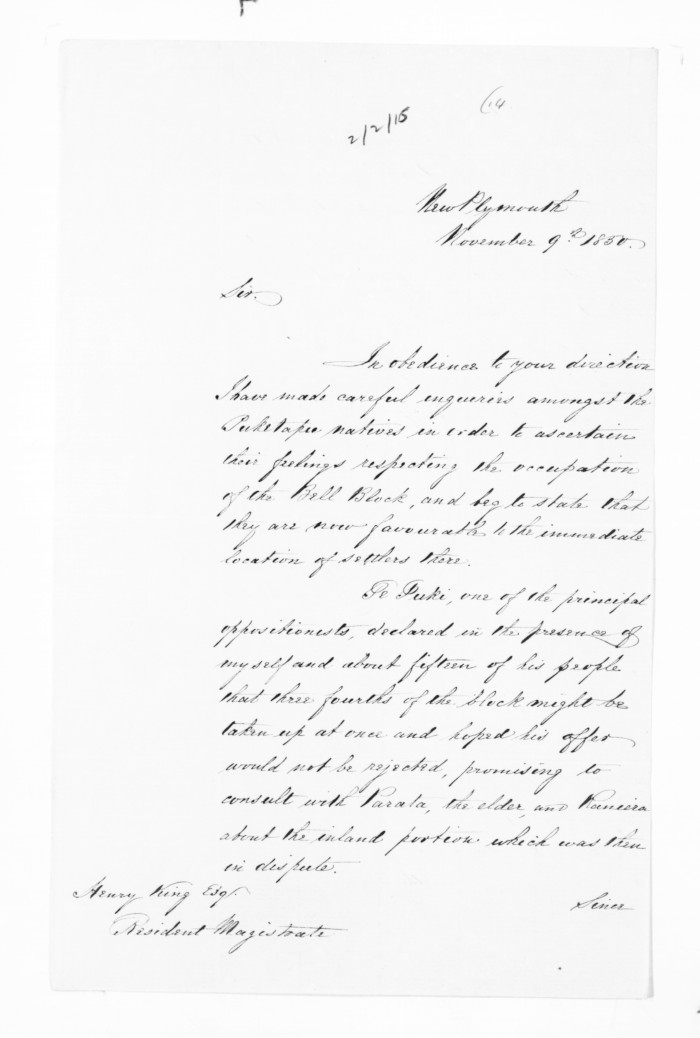 (14
2/2/15
New Plymouth
November 9th 1850.
Sir.
In obedience to your direction
I have made careful inqueries amongst the
Puketapu natives in order to ascertain
their feelings respecting the occupation
of the Bell Block, and beg to state that
they are now favourable to the immediate
location of settlers there.
Te Puki, one of the principal
oppositionists, declared in the presence of
myself and about fifteen of his people
that three fourths of the block might be
taken up at once and hoped his offer
would not be rejected, promising to
consult with Parata, the elder, and Raniera
about the inland portion which was then
in dispute.
Henry King Esqr.
Since
Resident Magistrate